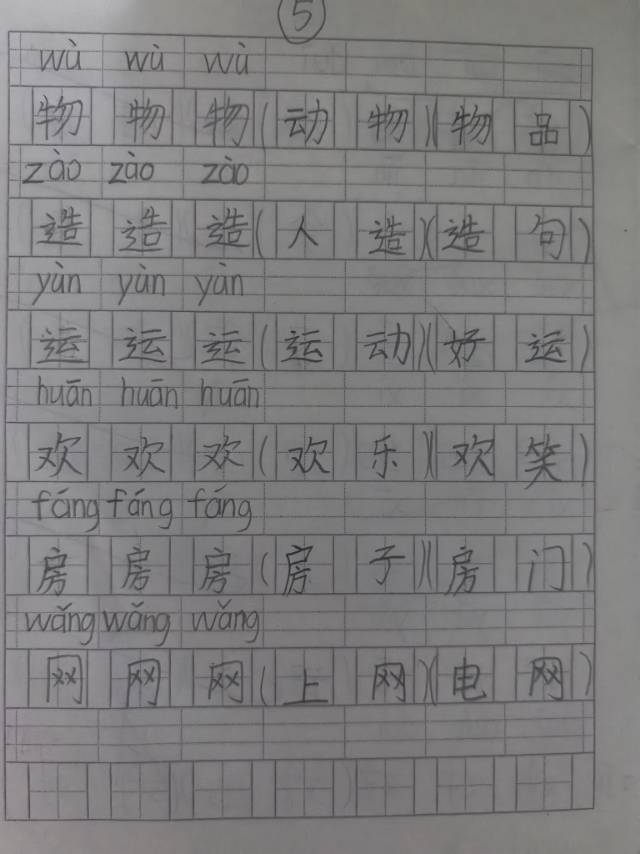 5
wù wù wù
物 物 物 (动 物)(物 品)
zào zào zào
造 造 造 (人 造)(造 句)
yùn yùn yùn
运 运 运 (运 动)(好 运)
huān huān huān
欢 欢 欢 (欢 乐)(欢 笑)
fáng fáng fáng
房 房 房 (房 子)(房 门)
wǎng wǎng wǎng
网 网 网 (上 网)(电 网)